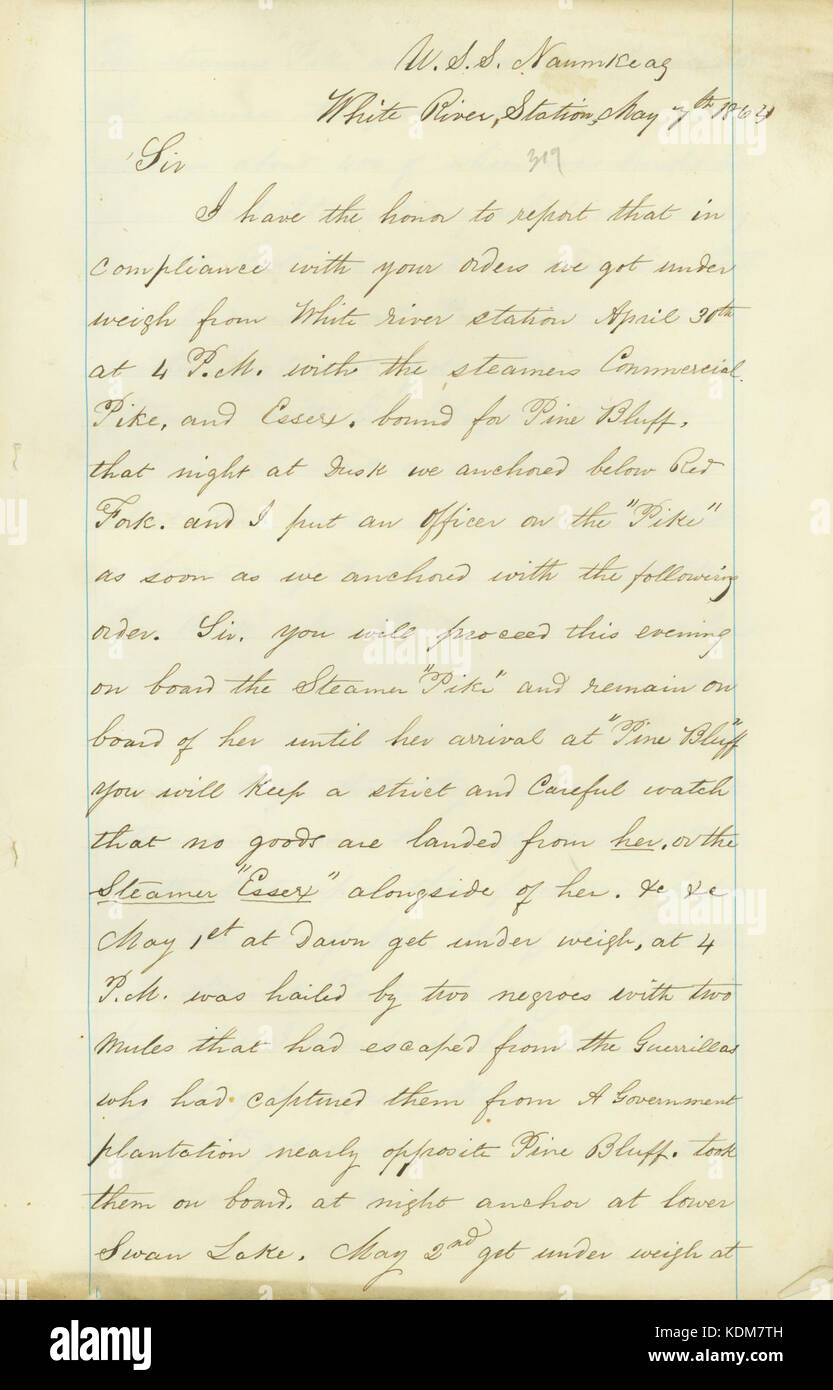 U.S.S. Naumkeag
White River, Station, May 7th 1864
319
Sir
I have the honor to report that in
compliance with your orders we got under
weigh from White river station April 30th
at 4 P.M. with the steamers Commercial.
Pike, and Essex. bound for Pine Bluff.
that night at Dusk we anchored below Red
Fork. and I put an officer on the "Pike"
as soon as we anchored with the following
order. Sir. you will proceed this evening
on board the Steamer "Pike" and remain on
board of her until her arrival at "Pine Bluff"
you will Keep a strict and Careful watch
that no goods are landed from her. or the
Steamer "Essex" alongside of her. &c &c
May 1st at Dawn get under weigh, at 4
P.M. was hailed by two negroes with two
Mules that had escaped from the Guerrillas
who had captured them from A Government
plantation nearly opposite Pine Bluff. took
them on board. at night anchor at lower
Swan Lake. May 2nd get under weigh at
alamy
alamy
alamy
alamy
alamy
a
a
a
a
a
alamy
Image ID: KDM7TH
www.alamy.com